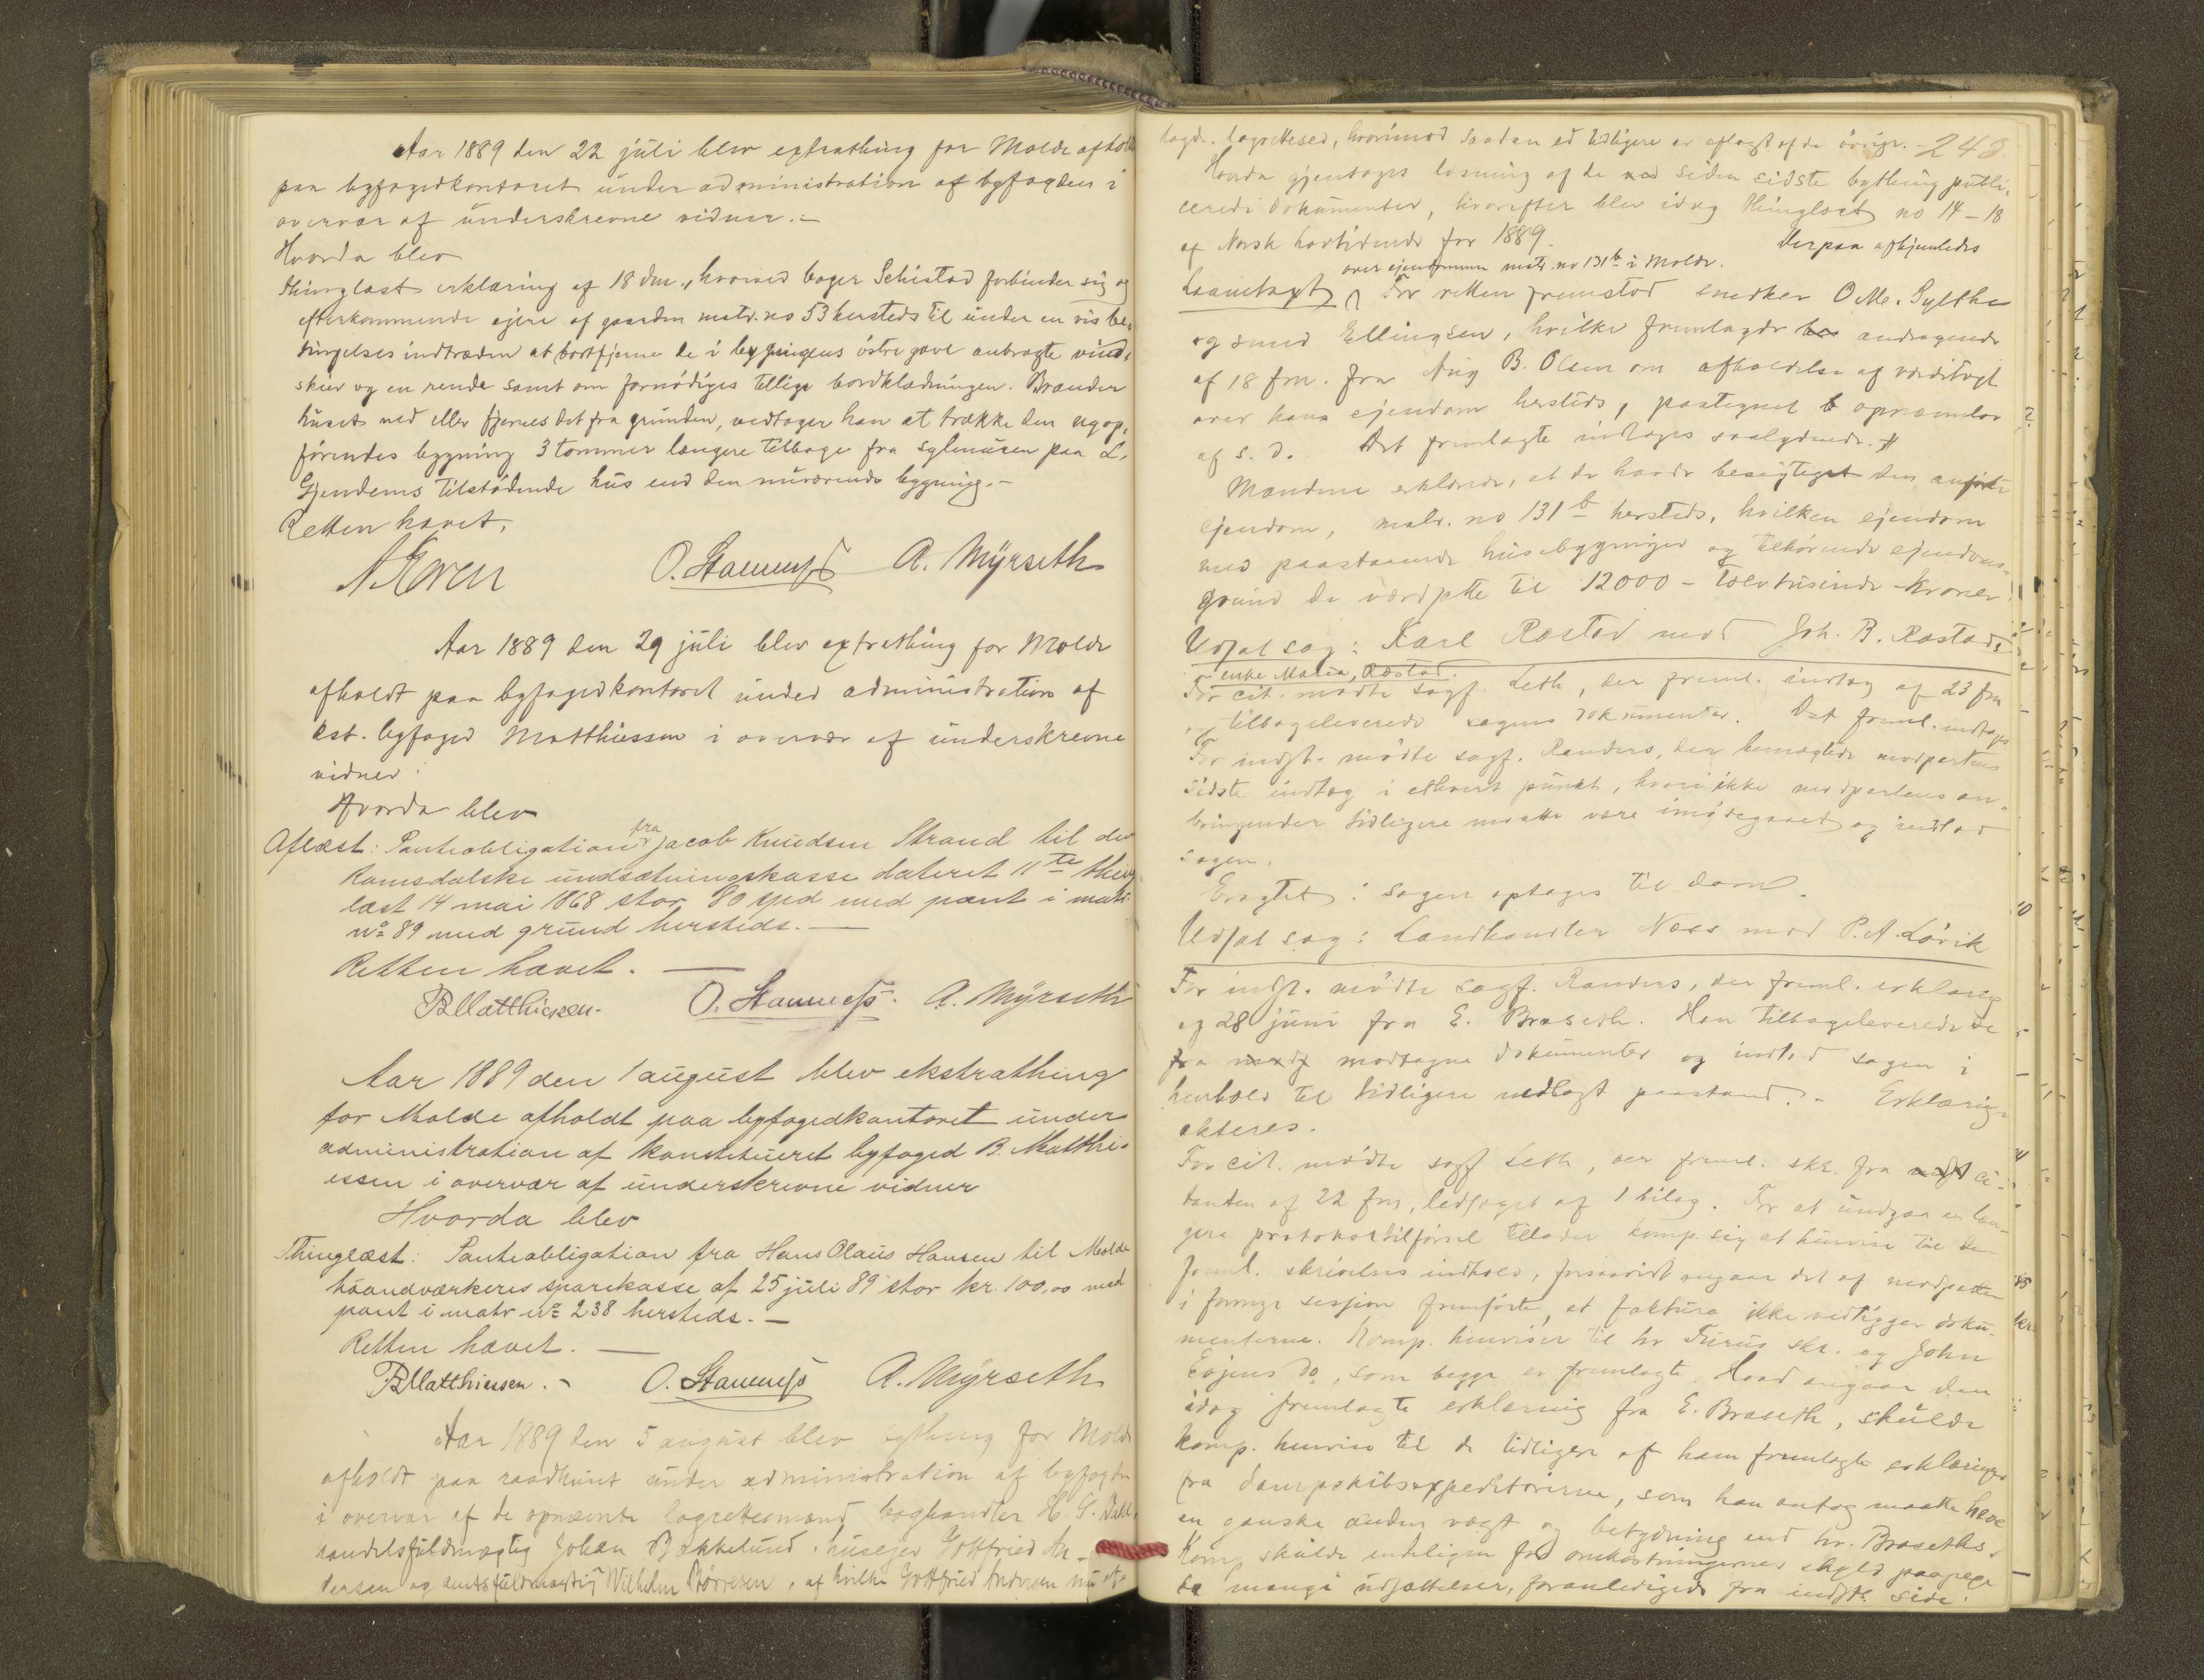 Aar 1889 den 22 juli blev extrathing for Molde afholdt
paa byfogedkontoret under administration af byfogden i
overvær af underskrevne vidner.-
Hvorda blev
Thinglæst erklæring af 18 dm., hvorved bager Schistad forbinder sig og
efterkommende ejere af gaarden matr. no 53 hersteds til under en vis be-
tingelses indtræden at bortfjerne de i bygningens östre gavl anbragte vind-
skier og en rende samt om fornödiges tillige bordklædningen. Brænder
huset ned eller fjernes det fra grunden, vedtager han at trække den nyop-
förendes bygning 3 tommer længere tilbage fra sylmuren paa L.
Gjendems tilstödende hus end den nuværende bygning.-
Retten hævet.
O. Stamness A. Myrseth
Aar 1889 den 29 juli blev extrathing for Molde
afholdt paa byfogedkontoret under administration af
kst. byfoged Matthiessen i overvær af underskrevne
vidner:
Hvorda blev
Aflæst: Panteobligation fra Jacob Knudsen Strand til den
Romsdalske undsætningskasse dateret 11te thing-
læst 14 mai 1868 stor 80 spd med pant i matr
no 89 med grund hersteds.-
Retten hævet.-
B Matthiessen. O. Stamness. A. Myrseth
Aar 1889 den 1 august blev ekstrathing
for Molde afholdt paa byfogedkontoret under
administration af konstitueret byfoged B. Matthi-
essen i overvær af underskrevne vidner
Hvorda blev
Thinglæst: Panteobligation fra Hans Olaus Hansen til Molde
haandværkeres sparekasse af 25 juli 89 stor kr. 100,00 med
pant i matr no 238 hersteds.-
Retten hævet.-
B Matthiessen.- O. Stamness A. Myrseth
Aar 1889 den 5 august blev bything for Molde
afholdt paa raadhuset under administration af byfogden
i overvær af de opnævnte lagrettesmænd boghandler H. G. Dahl,
handelsfuldmægtig Johan Bakkelund, huseier Gottfried An-
dersen og amtsfuldmægtig Vilhelm Börresen, af hvilke Gottfried Andersen nu af-
lagde lagrettesed, hvorimod saadan ed tidligere er aflagt af de övrige.- 248.
Hvorda gjentoges læsning af de siden sidste bything publi-
cerede dokumenter, hvorefter blev idag thinglæst no 14-18
af Norsk lovtidende for 1889. Derpaa afhjemledes
over ejendommen matr. no 131b i Molde.
Laanetaxt For retten fremstod snedker O. M. Sylthe
og smed Ellingsen, hvilke fremlagde andragende
af 18 fm. fra Aug B. Olsen om afholdelse af værditaxt
over hans ejendom hersteds, paategnet opnævnelse
af s. d. Det fremlagte indtages saalydende. #
Mændene erklærede, at de havde besigtiget den anförte
ejendom, matr. no 131b hersteds, hvilken ejendom
med paastaaende husebygninger og tilhörende ejendoms-
grund de værdsatte til 12000 - tolvtusinde kroner.
Udsat sag: Karl Rostad mod Joh. B. Rostads
enke Maria Rostad.
For cit. mödte sagf. Leth, der freml. indlæg af 23 fm
tilbageleverede sagens dokumenter. Det freml. indtages
For indst. mödte sagf. Randers, der benægtede modpartens
sidste indlæg i ethvert punkt, hvori ikke modpartens an-
bringender tidligere maatte være imödegaaet og indlod
sagen.
Eragtet: sagen optages til dom.
Udsat sag: Landhandler Næss mod P. A. Lövik
For indst. mödte sagf. Randers, der freml. erklæring
af 28 juni fra E. Braseth. Han tilbageleverede de
fra modtagne dokumenter og indlod sagen i
henhold til tidligere nedlagt paastand.- Erklæringen
akteres.
For cit. mödte sagf Leth, der freml. skr. fra ci-
tanten af 22 fm, ledsaget af 1 bilag. For at undgaa en læn-
gere protokoltilförsel tillader komp. sig at henvise til den
freml. skrivelses indhold, forsaavidt angaar det af modparten
i forrige session fremförte, at faktura ikke vedligger doku-
menterne. Komp. henviser til hr Furus skr. og John
Eojens do, som begge er fremlagte. Hvad angaar den
idag fremlagte erklæring fra E. Braseth, skulde
komp. henvise til de tidligere af ham fremlagte erklæringer
fra dampskibsexpeditörerne, som han antog maatte have
en ganske anden vægt og betydning end hr. Braseths.
Komp. skulde endeligen for omkostningernes skyld paapege
de mange udsættelser, foranledigede fra indst. side.